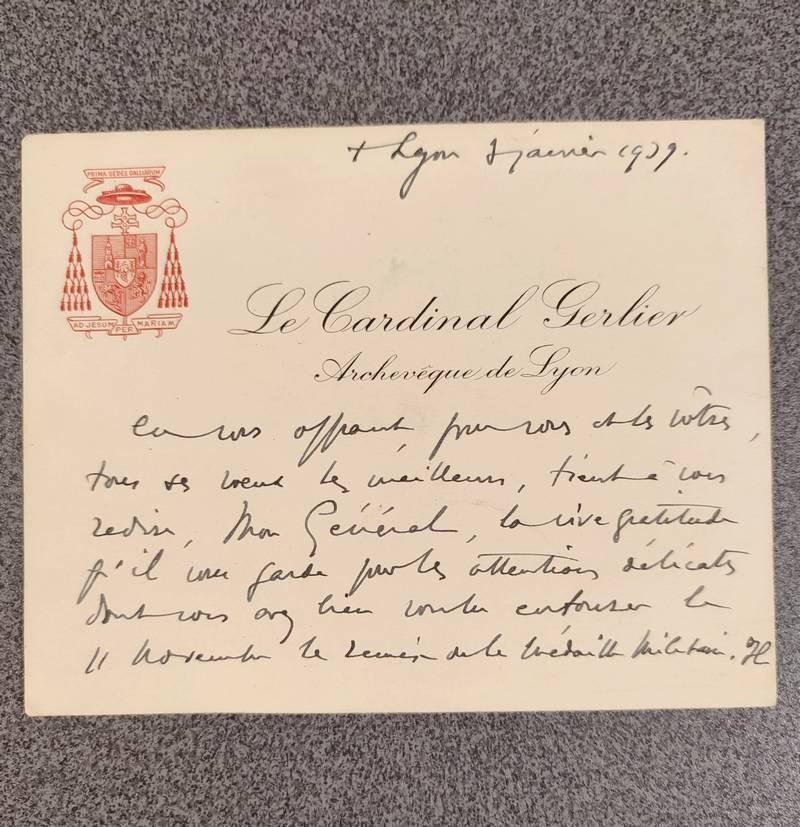 + Lyon janvier 1939.
PRIMA SEDES GALLIARUM
AD JESUM PER MARIAM
Le Cardinal Gerlier
Archevêque de Lyon
en vous offrant, pour vous et les vôtres,
tous ses vœux les meilleurs, tient à vous
redire, Mon Général, la vive gratitude
qu'il vous garde pour les attentions délicates
dont vous avez bien voulu entourer le
11 Novembre la remise de la Médaille Militaire.